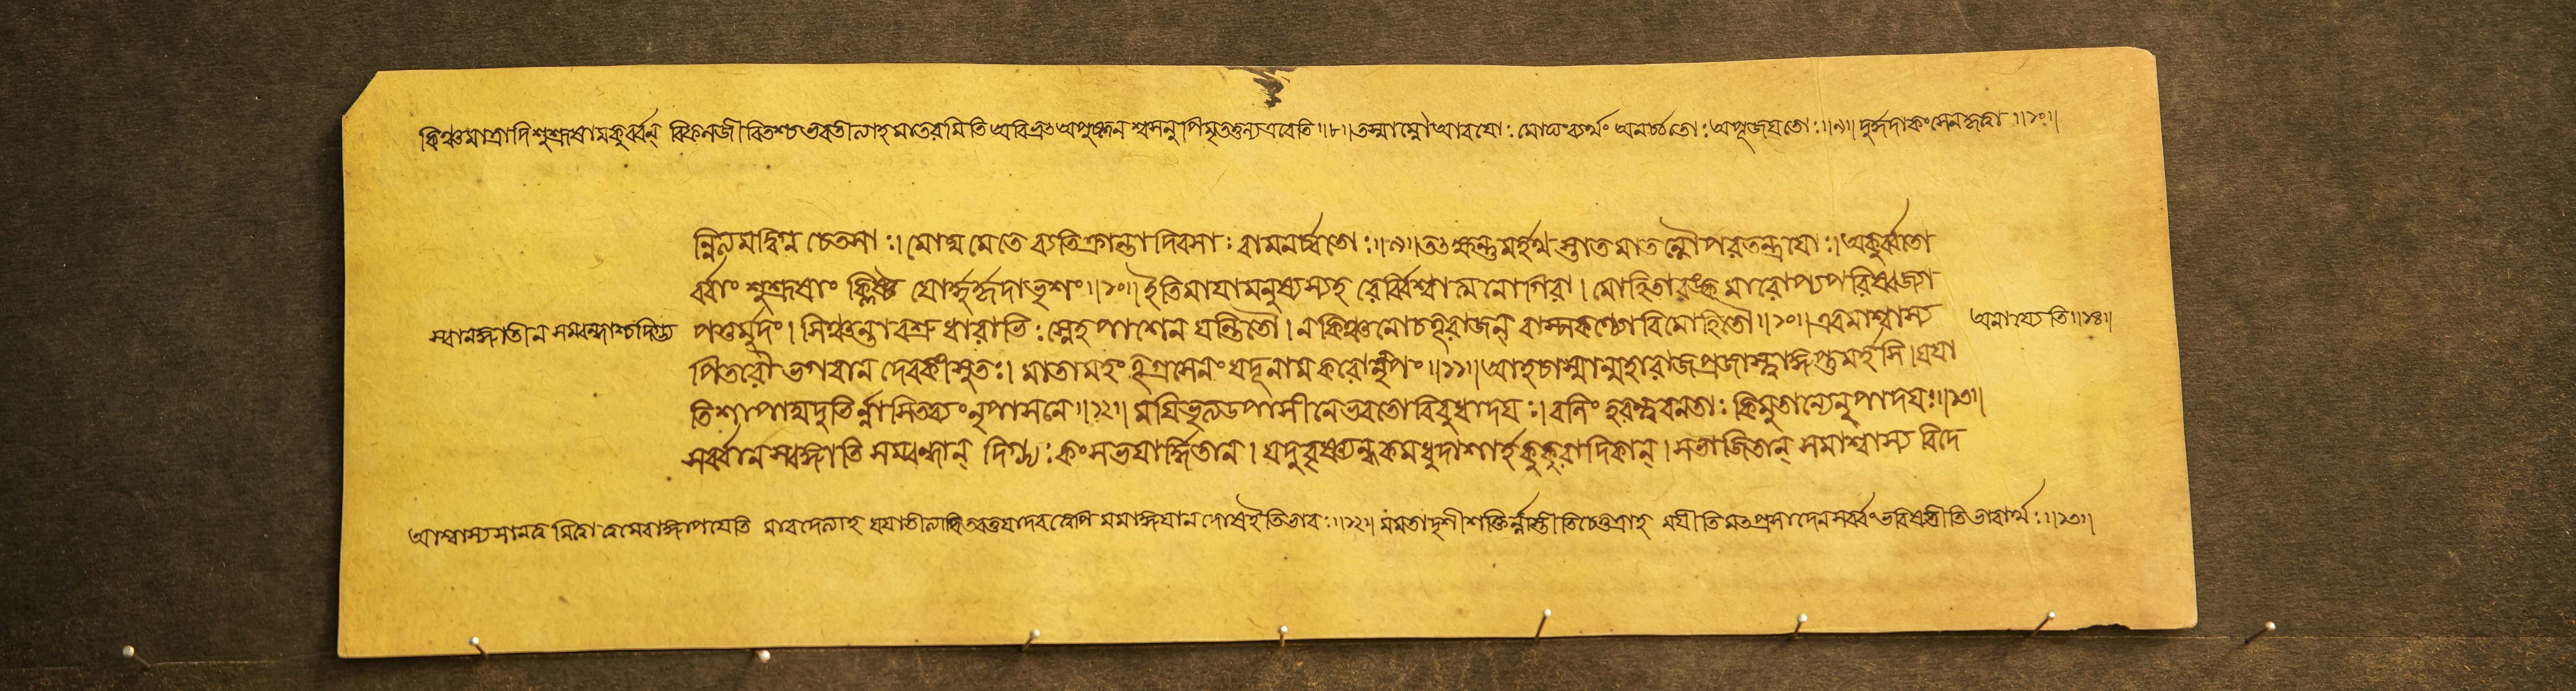 কিঞ্চমাত্রাদিশুশ্রূষামকুর্ব্বন্ বিফলজীবিতশ্চ ভবতীত্যাহ মাতরমিতি অবিভ্রৎ অপুষ্ণন শ্বসন্নপি মৃততুল্যএবেতি॥৮॥তস্মান্নৌ আবয়োঃ মোঘংব্যর্থং অনর্চ্চতোঃ অপূজয়তোঃ॥৯॥ দুর্হৃদাকংসেনহৃদা॥১০॥
ন্নিত্যমুদ্বিগ্ন চেতসাঃ। মোঘ মেতে ব্যতিক্রান্তা দিবসাঃ বামনর্চ্চতোঃ॥৯॥তৎ ক্ষন্তুমর্হথ স্তাত মাতর্ন্নৌ পরতন্ত্রয়োঃ।অকুর্ব্বতো
র্ব্বাং শুশ্রূষাং ক্লিষ্ট য়োর্দ্দুর্হৃদাভৃশং॥১০॥ইতিমায়ামনুষ্যস্যহ রের্ব্বিশ্বাত্মনোগিরা। মোহিতাবঙ্ক মারোপ্যপরিষ্বজ্যা
পতুর্মুদং। সিঞ্চন্তাবশ্রু ধারাভিঃ স্নেহ পাশেন যন্ত্রিতৌ। নকিঞ্চনোচতূরাজন্ বাস্পকণ্ঠৌবিমোহিতৌ॥১০॥এবমাশ্বাস্য
পিতরৌ ভগবান দেবকীসুতঃ। মাতামহং তূগ্রসেনং যদূনামকরোন্নৃপং॥১১॥আহচাস্মান্মহারাজপ্রজাস্ত্বাজ্ঞপ্তুমর্হসি।যযা
তিশাপাদ্যদুভির্ন্নাসিতব্যং নৃপাসনে॥১২॥ ময়িভৃত্যউপাসীনেভবতোবিবুধাদয়ঃ। বলিং হরন্ত্যবনতাঃ কিমুতান্যেনৃপাদয়ঃ॥১৩॥
সর্ব্বান স্বজ্ঞাতি সম্বন্ধান্ দিগ্ভ্যঃ কংসভয়ার্দ্দিতান। যদুবৃষ্ণ্যন্ধকমধুদাশার্হকুকুরাদিকান্। সভাজিতান্ সমাশ্বাস্য বিদে
স্বানজ্ঞাতীন সম্বন্ধাশ্চদিগ্ভ্য
আনায্যেতি॥১৪॥
আশ্বাস্যসানন্দ মিতো মেবাজ্ঞাপয়েতি মাবদেত্যাহ যযাতীত্যাদি মমাজ্ঞয়ান দোষইতিভাবঃ॥১২॥ মমতাদৃশীশক্তির্ন্নাস্তীতিচেত্তত্রাহ ময়ীতিমৎপ্রসাদেনসর্ব্বংভবিষ্যতীতিভাবার্থঃ॥১৩॥